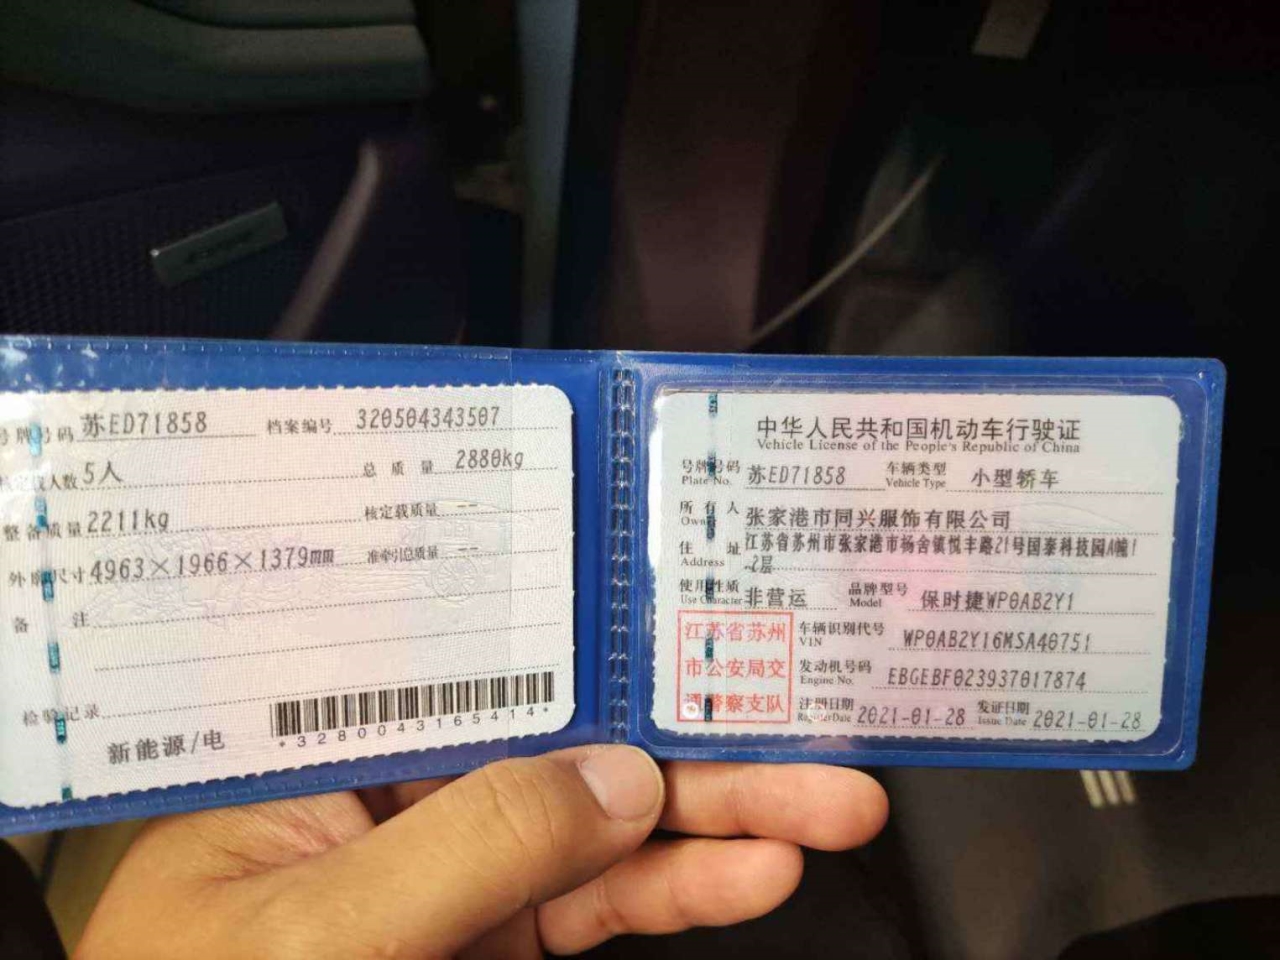 号牌号码 苏ED71858 档案编号 320504343507
核定载人数 5人 总质量 2880kg
整备质量 2211kg 核定载质量 --
外廓尺寸 4963×1966×1379mm 准牵引总质量 --
备注
检验记录
*3280043165414*
新能源/电
中华人民共和国机动车行驶证
Vehicle License of the People's Republic of China
号牌号码 苏ED71858 车辆类型 小型轿车
Plate No. Vehicle Type
所有人 张家港市同兴服饰有限公司
Owner
住址 江苏省苏州市张家港市杨舍镇悦丰路21号国泰科技园A幢1
Address -2层
使用性质 非营运 品牌型号 保时捷WP0AB2Y1
Use Character Model
江苏省苏州
市公安局交
通警察支队
车辆识别代号 WP0AB2Y16MSA40751
VIN
发动机号码 EBGEBF023937017874
Engine No.
注册日期 2021-01-28 发证日期 2021-01-28
Register Date Issue Date